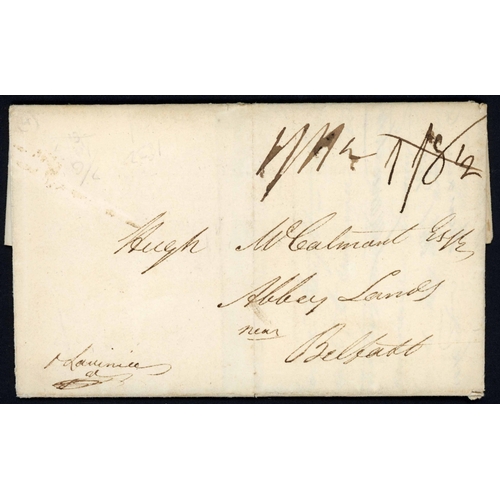 1/11½ 1/8½
Hugh McCalmont Esqr
Abbey Lands
near
Belfast
Lavinia